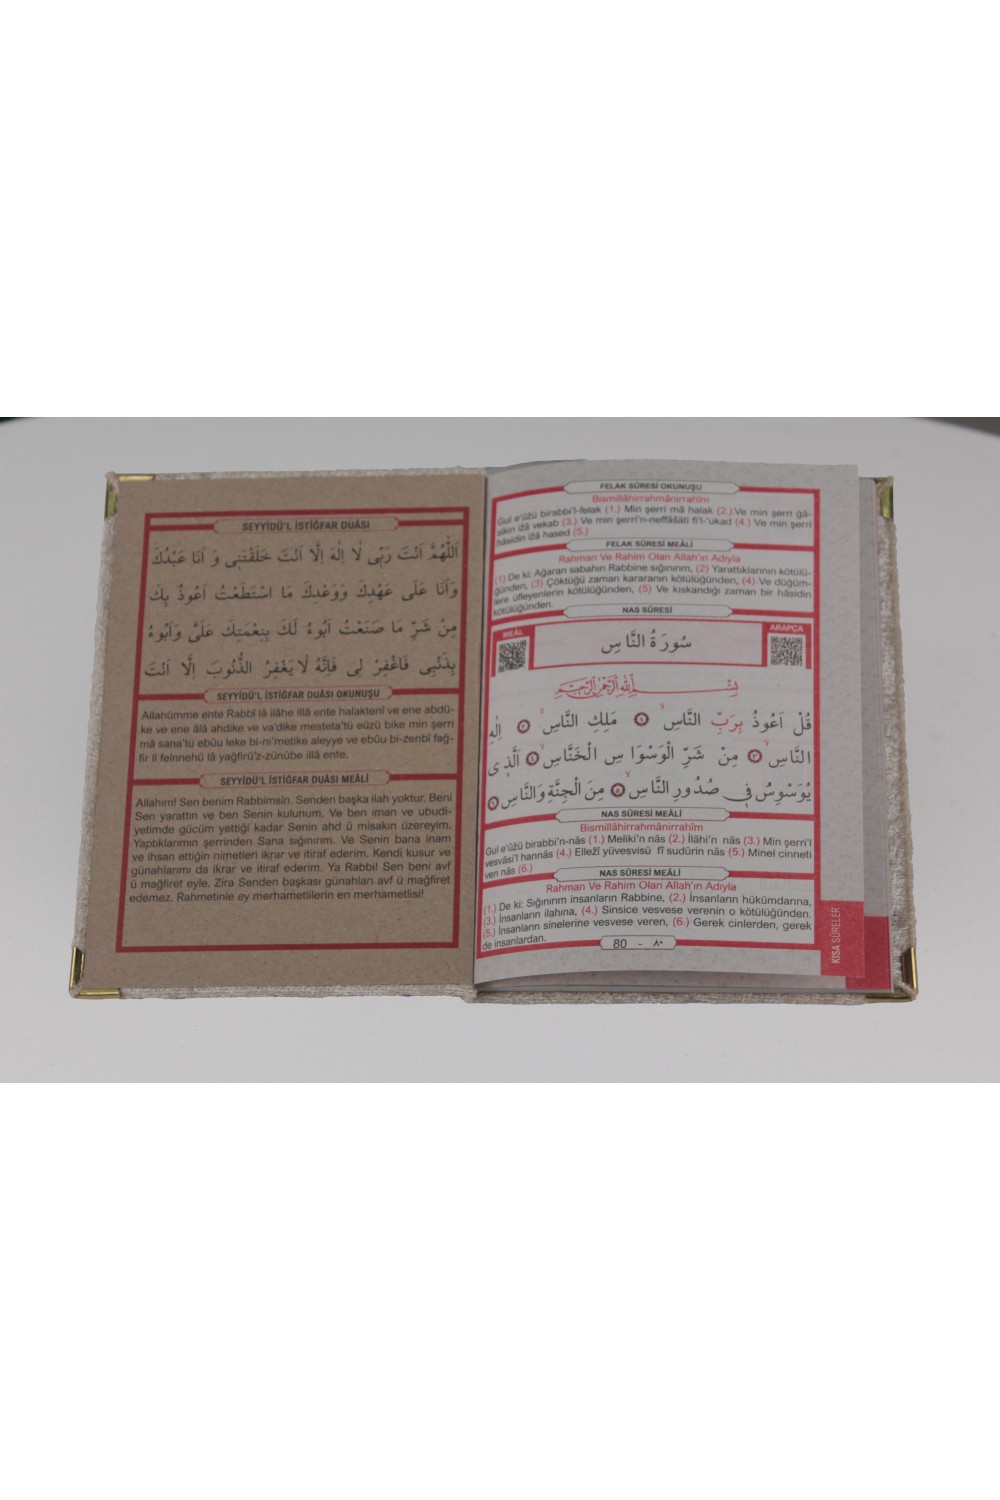 SEYYİDÜ'L İSTİĞFAR DUÂSI
اَللّٰهُمَّ اَنْتَ رَبّ۪ى لَا اِلٰهَ اِلَّا اَنْتَ خَلَقْتَن۪ى وَ اَنَا عَبْدُكَ
وَاَنَا عَلَى عَهْدِكَ وَوَعْدِكَ مَا اسْتَطَعْتُ اَعُوذُ بِكَ
مِنْ شَرِّ مَا صَنَعْتُ اَبُوءُ لَكَ بِنِعْمَتِكَ عَلَىَّ وَاَبُوءُ
بِذَنْب۪ى فَاغْفِرْ ل۪ى فَاِنَّهُ لَا يَغْفِرُ الذُّنُوبَ اِلَّا اَنْتَ
SEYYİDÜ'L İSTİĞFAR DUÂSI OKUNUŞU
Allahümme ente Rabbî lâ ilâhe illâ ente halaktenî ve ene abdü-
ke ve ene âlâ ahdike ve va'dike mesteta'tü eûzü bike min şerri
mâ sana'tü ebûu leke bi-ni'metike aleyye ve ebûu bi-zenbî fağ-
fir lî feinnehû lâ yağfirü'z-zünûbe illâ ente.
SEYYİDÜ'L İSTİĞFAR DUÂSI MEÂLİ
Allahım! Sen benim Rabbimsin. Senden başka ilah yoktur. Beni
Sen yarattın ve ben Senin kulunum. Ve ben iman ve ubudi-
yetimde gücüm yettiği kadar Senin ahd ü misakın üzereyim.
Yaptıklarımın şerrinden Sana sığınırım. Ve Senin bana inam
ve ihsan ettiğin nimetleri ikrar ve itiraf ederim. Kendi kusur ve
günahlarımı da ikrar ve itiraf ederim. Ya Rabbi! Sen beni avf
ü mağfiret eyle. Zira Senden başkası günahları avf ü mağfiret
edemez. Rahmetinle ey merhametlilerin en merhametlisi!
FELAK SÛRESİ OKUNUŞU
Bismillâhirrahmânirrahîm
Gul e'ûzü birabbi'l-felak (1.) Min şerri mâ halak (2.).Ve min şerri ğâ-
sikin izâ vekab (3.) Ve min şerri'n-neffâsâti fi'l-'ukad (4.) Ve min şerri
hâsidin izâ hased (5.)
FELAK SÛRESİ MEÂLİ
Rahman Ve Rahim Olan Allah'ın Adıyla
(1) De ki: Ağaran sabahın Rabbine sığınırım, (2) Yarattıklarının kötülü-
ğünden, (3) Çöktüğü zaman karanının kötülüğünden, (4) Ve düğüm-
lere üfleyenlerin kötülüğünden, (5) Ve kıskandığı zaman bir hâsidin
kötülüğünden.
NAS SÛRESİ
MEÂL
سُورَةُ النَّاسِ
ARAPÇA
بِسْمِ اللّٰهِ الرَّحْمٰنِ الرَّحِيمِ
قُلْ اَعُوذُ بِرَبِّ النَّاسِۙ ﴿١﴾ مَلِكِ النَّاسِۙ ﴿٢﴾ اِلٰهِ
النَّاسِۙ ﴿٣﴾ مِنْ شَرِّ الْوَسْوَاسِ الْخَنَّاسِۙ ﴿٤﴾ اَلَّذ۪ى
يُوَسْوِسُ ف۪ى صُدُورِ النَّاسِۙ ﴿٥﴾ مِنَ الْجِنَّةِ وَالنَّاسِ ﴿٦﴾
NAS SÛRESİ MEÂLİ
Bismillâhirrahmânirrahîm
Gul e'ûzü birabbi'n-nâs (1.) Meliki'n nâs (2.) İlâhi'n nâs (3.) Min şerri'l
vesvâsi'l hannâs (4.) Ellezî yüvesvisü fî sudûrin nâs (5.) Minel cinneti
ven nâs (6.)
NAS SÛRESİ MEÂLİ
Rahman Ve Rahim Olan Allah'ın Adıyla
(1.) De ki: Sığınırım insanların Rabbine, (2.) İnsanların hükümdarına,
(3.) İnsanların ilahına, (4.) Sinsice vesvese verenin o kötülüğünden.
(5.) İnsanların sinelerine vesvese veren, (6.) Gerek cinlerden, gerek
de insanlardan.
80 - ٨٠
KISA SÛRELER